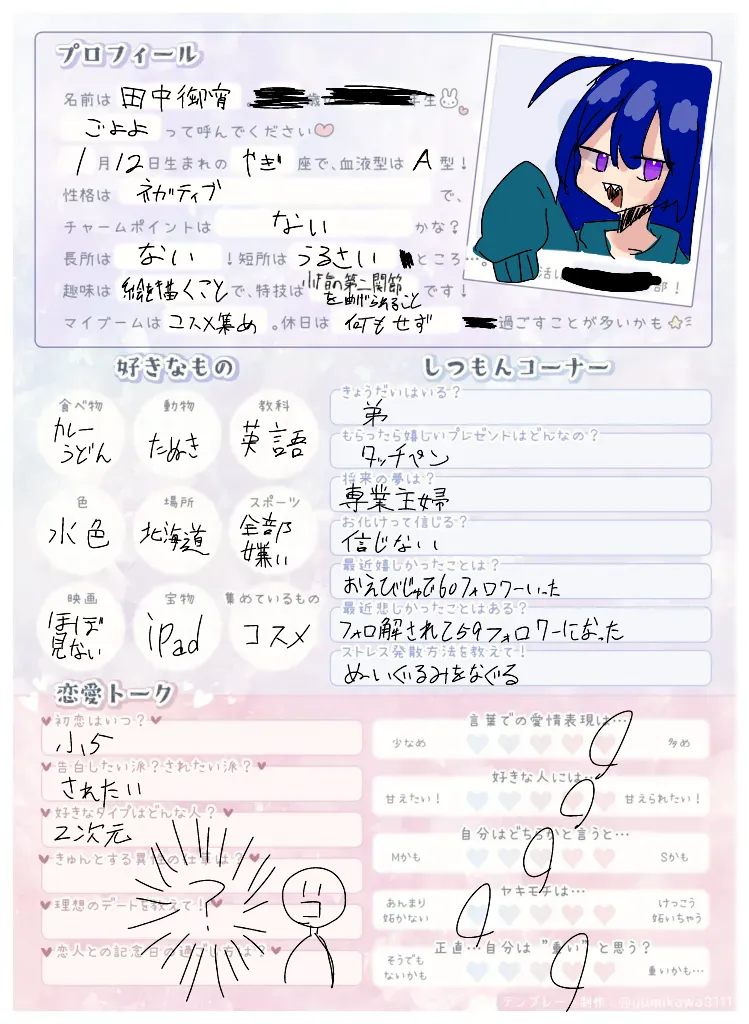 プロフィール
名前は 田中御宵 歳 年生
ごよよ って呼んでください
1月12日生まれの やぎ 座で、血液型は A 型！
性格は ネガティブ で、
チャームポイントは ない かな？
長所は ない ！短所は うるさい ところ…。
活 部！
趣味は 絵を描くことで、特技は 小指の第二関節を曲げられること です！
マイブームは コスメ集め 。休日は 何もせず 過ごすことが多いかも
好きなもの
食べ物 動物 教科
カレーうどん たぬき 英語
色 場所 スポーツ
水色 北海道 全部嫌い
映画 宝物 集めているもの
ほぼ見ない iPad コスメ
しつもんコーナー
きょうだいはいる？
弟
もらったら嬉しいプレゼントはどんなの？
タッチペン
将来の夢は？
専業主婦
お化けって信じる？
信じない
最近嬉しかったことは？
おえびじゅで60フォロワーいった
最近悲しかったことはある？
フォロ解されて59フォロワーになった
ストレス発散方法を教えて！
ぬいぐるみをなぐる
恋愛トーク
初恋はいつ？
小5
告白したい派？されたい派？
されたい
好きなタイプはどんな人？
2次元
きゅんとする異性の仕草は？
理想のデートを教えて！
恋人との記念日の過ごし方は？
？
言葉での愛情表現は…
少なめ 多め
好きな人には…
甘えたい！ 甘えられたい！
自分はどちらかと言うと…
Mかも Sかも
ヤキモチは…
あんまり妬かない けっこう妬いちゃう
正直…自分は "重い" と思う？
そうでもないかも 重いかも…
テンプレート制作：@yumikawa3111